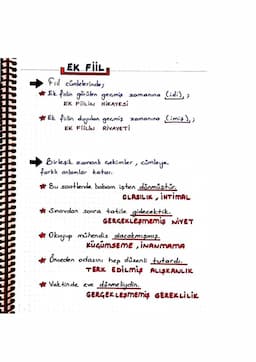 EK FİİL
Fiil cümlelerinde;
Ek fiilin görülen geçmiş zamanına (idi),;
EK FİİLİN HİKAYESİ
Ek fiilin duyulan geçmiş zamanına (imiş),;
EK FİİLİN RİVAYETİ
Birleşik zamanlı çekimler, cümleye
farklı anlamlar katar.
Bu saatlerde babam işten dönmüştür.
OLASILIK, İHTİMAL
Sınavdan sonra tatile gidecektik.
GERÇEKLEŞMEMİŞ NİYET
Okuyup mühendis olacakmışmış.
KÜÇÜMSEME, İNANMAMA
Önceden odasını hep düzenli tutardı.
TERK EDİLMİŞ ALIŞKANLIK
Vaktinde eve dönmeliydin.
GERÇEKLEŞMEMİŞ GEREKLİLİK